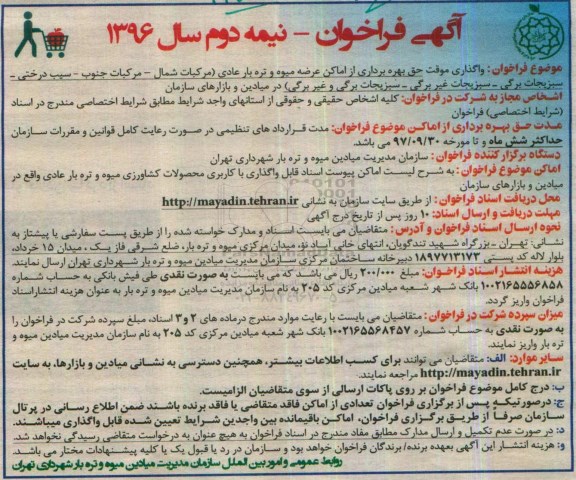 آگهی فراخوان – نیمه دوم سال ۱۳۹۶
موضوع فراخوان : واگذاری موقت حق بهره برداری از اماکن عرضه میوه و تره بار عادی (مرکبات شمال – مرکبات جنوب – سیب درختی –
سبزیجات برگی – سبزیجات غیر برگی – سبزیجات برگی و غیر برگی) در میادین و بازارهای سازمان
اشخاص مجاز به شرکت در فراخوان: کلیه اشخاص حقیقی و حقوقی از استانهای واجد شرایط مطابق شرایط اختصاصی مندرج در اسناد
(شرایط اختصاصی) فراخوان
مدت حق بهره برداری از اماکن موضوع فراخوان: مدت قرارداد های تنظیمی در صورت رعایت کامل قوانین و مقررات سازمان
حداکثر شش ماه و تا مورخه ۹۷/۰۹/۳۰ می باشد.
دستگاه برگزار کننده فراخوان : سازمان مدیریت میادین میوه و تره بار شهرداری تهران
اماکن موضوع فراخوان : به شرح لیست اماکن پیوست اسناد قابل واگذاری با کاربری محصولات کشاورزی میوه و تره بار عادی واقع در
میادین و بازارهای سازمان
محل دریافت اسناد فراخوان : از طریق سایت سازمان به نشانی http://mayadin.tehran.ir
مهلت دریافت و ارسال اسناد: ۱۰ روز پس از تاریخ درج آگهی
نحوه ارسال اسناد فراخوان و آدرس : متقاضیان می بایست اسناد و مدارک خواسته شده را از طریق پست سفارشی یا پیشتاز به
نشانی: تهران – بزرگراه شهید تندگویان، انتهای خانی آباد نو، میدان مرکزی میوه و تره بار، ضلع شرقی فاز یک ، میدان ۱۵ خرداد،
بلوار لاله کد پستی ۱۸۹۷۷۱۳۱۷۳ دبیرخانه ساختمان مرکزی سازمان مدیریت میادین میوه و تره بار شهرداری تهران ارسال نمایند.
هزینه انتشار اسناد فراخوان: مبلغ ۲۰۰/۰۰۰ ریال می باشد که می بایست به صورت نقدی طی فیش بانکی به حساب شماره
۱۰۰۲۱۶۵۵۶۸۵۸ بانک شهر شعبه میادین مرکزی کد ۲۰۵ به نام سازمان مدیریت میادین میوه و تره بار به عنوان هزینه انتشاراسناد
فراخوان واریز گردد.
میزان سپرده شرکت در فراخوان : متقاضیان می بایست با رعایت موارد مندرج درماده های ۲ و ۳ اسناد، مبلغ سپرده شرکت در فراخوان را
به صورت نقدی به حساب شماره ۱۰۰۲۱۶۵۵۶۸۴۵۷ بانک شهر شعبه میادین مرکزی کد ۲۰۵ به نام سازمان مدیریت میادین میوه و
تره بار واریز نمایند.
سایر موارد: الف: متقاضیان می توانند برای کسب اطلاعات بیشتر، همچنین دسترسی به نشانی میادین و بازارها، به سایت
http://mayadin.tehran.ir مراجعه نمایند.
ب: درج کامل موضوع فراخوان بر روی پاکات ارسالی از سوی متقاضیان الزامیست.
ج: درصورتیکه پس از برگزاری فراخوان تعدادی از اماکن فاقد متقاضی یا فاقد برنده باشند ضمن اطلاع رسانی در پرتال
سازمان صرفاً از طریق برگزاری فراخوان، اماکن باقیمانده بین واجدین شرایط تعیین شده قابل واگذاری میباشند.
د: در صورت عدم تکمیل و ارسال مدارک مطابق مفاد مندرج در اسناد فراخوان به هیچ عنوان به درخواست متقاضی رسیدگی نخواهد شد.
و: هزینه انتشار این آگهی بعهده برنده/ برندگان فراخوان خواهد بود و سازمان در رد یا قبول یک یا کلیه پیشنهادات مختار می باشد.
روابط عمومی و امور بین الملل سازمان مدیریت میادین میوه و تره بار شهرداری تهران